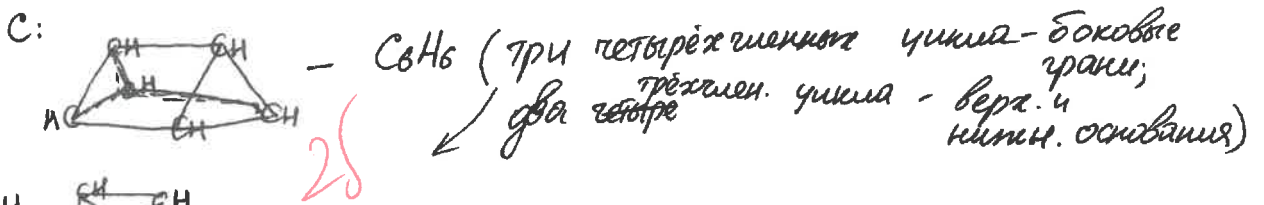 C:
CH CH
CH
H C CH CH
– C6H6 (три четырёхчленных цикла – боковые
грани;
два трёхчлен. цикла – верх. и
нижн. основания)
2б
CH CH